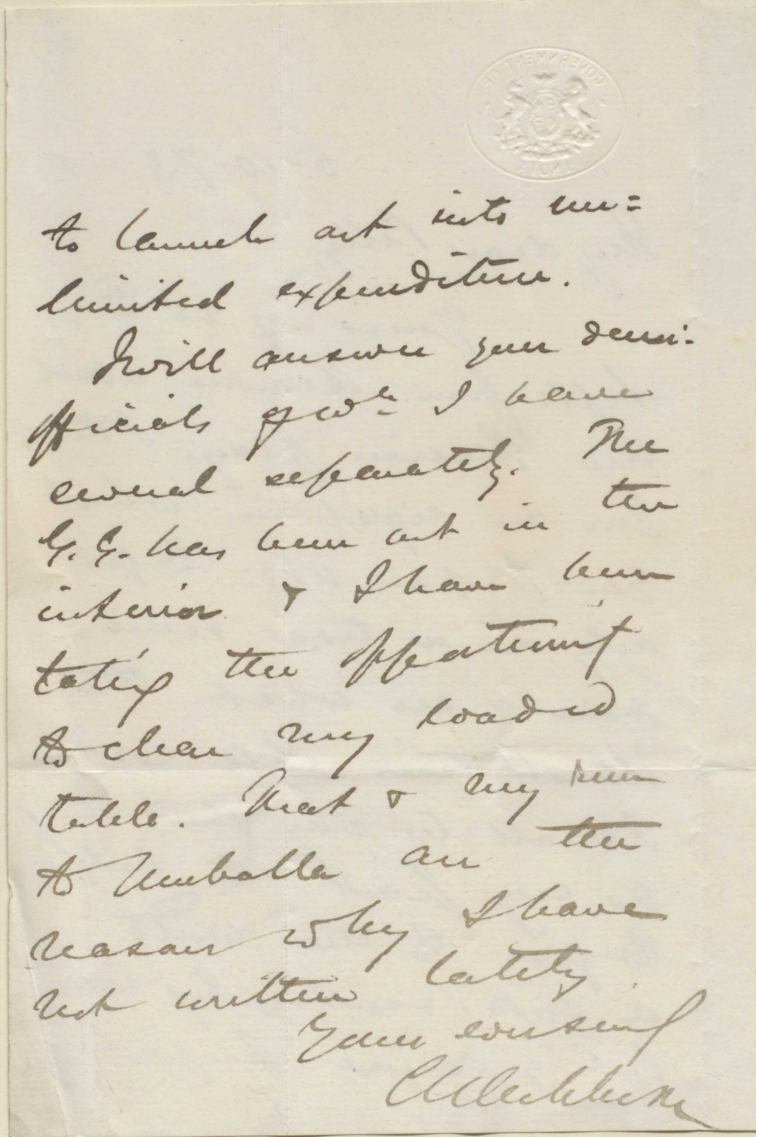 GOVERNMENT OF INDIA
to launch out into un=
limited expenditure.
I will answer your demi-
officials of wh. I have
several separately. The
G.G. has been out in the
interior & I have been
takig the opportunity
to clear my loaded
table. That & my run
to Umballa are the
reasons why I have
not written lately
Yours
CUAitchison